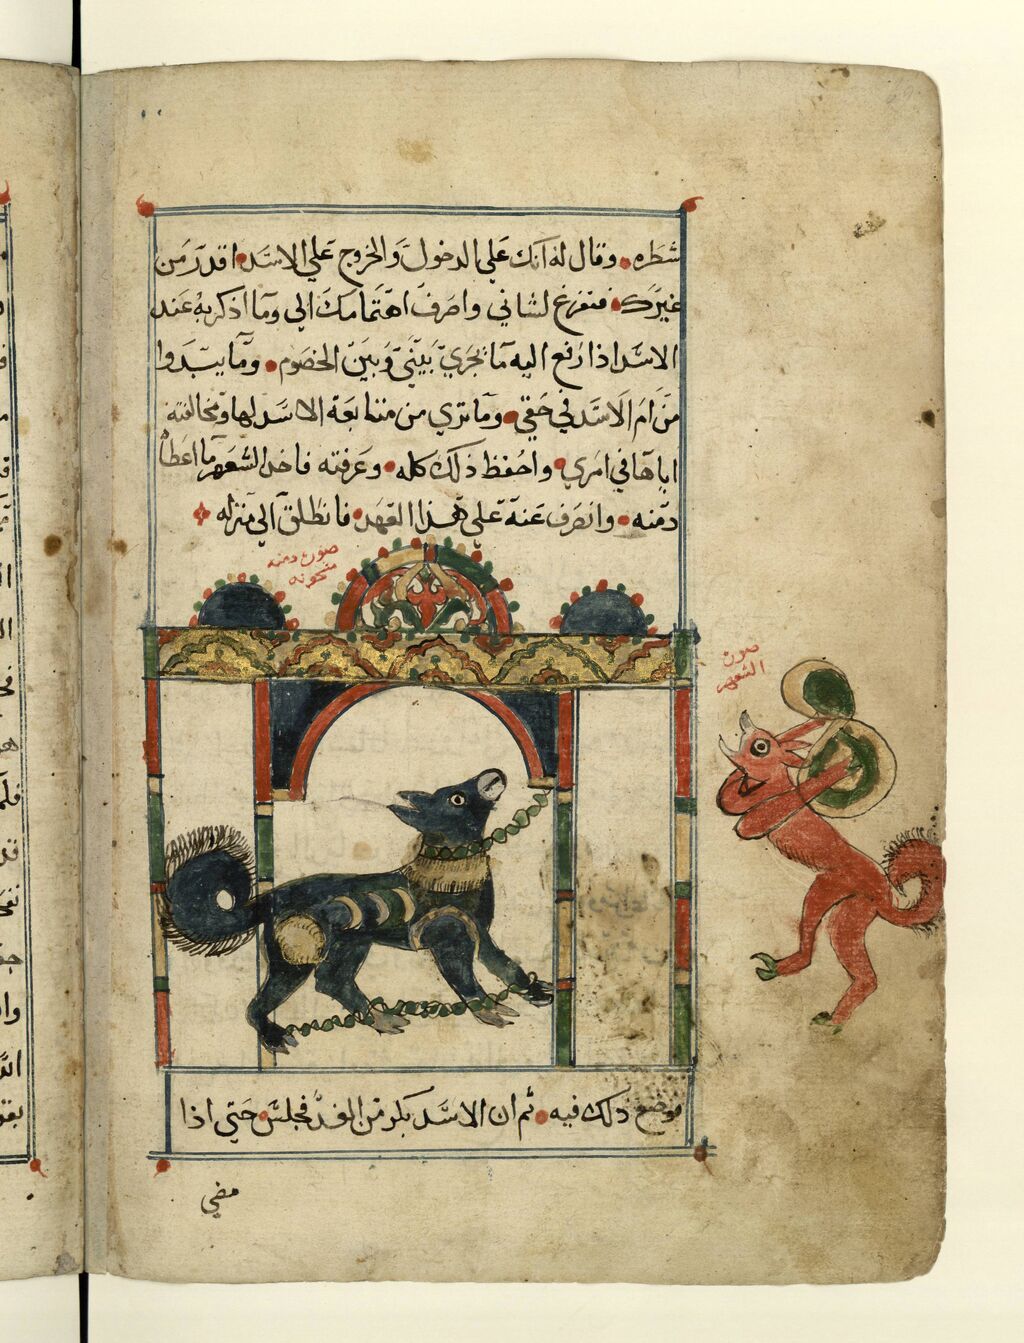 شطره وقال له انك علي الدخول والخروج علي الاسد اقدر من
غيرك فتفرغ لشاني واصرف اهتمامك الي وما اذكر به عند
الاسد اذا رفع اليه ما يجري بيني وبين الخصوم وما يبدوا
من ام الاسد في حقي وما تري من متابعة الاسد لها ومخالفته
اياها في امري واحفظ ذلك كله وعرفته فاخذ الشعهر ما اعطاه
دمنه وانصرف عنه علي هذا العهد فانطلق الي منزله
صورة دمنه
مسجونه
صورة
الشعهر
موضع ذلك فيه ثم ان الاسد بكر من الغد فجلس حتي اذا
مضي